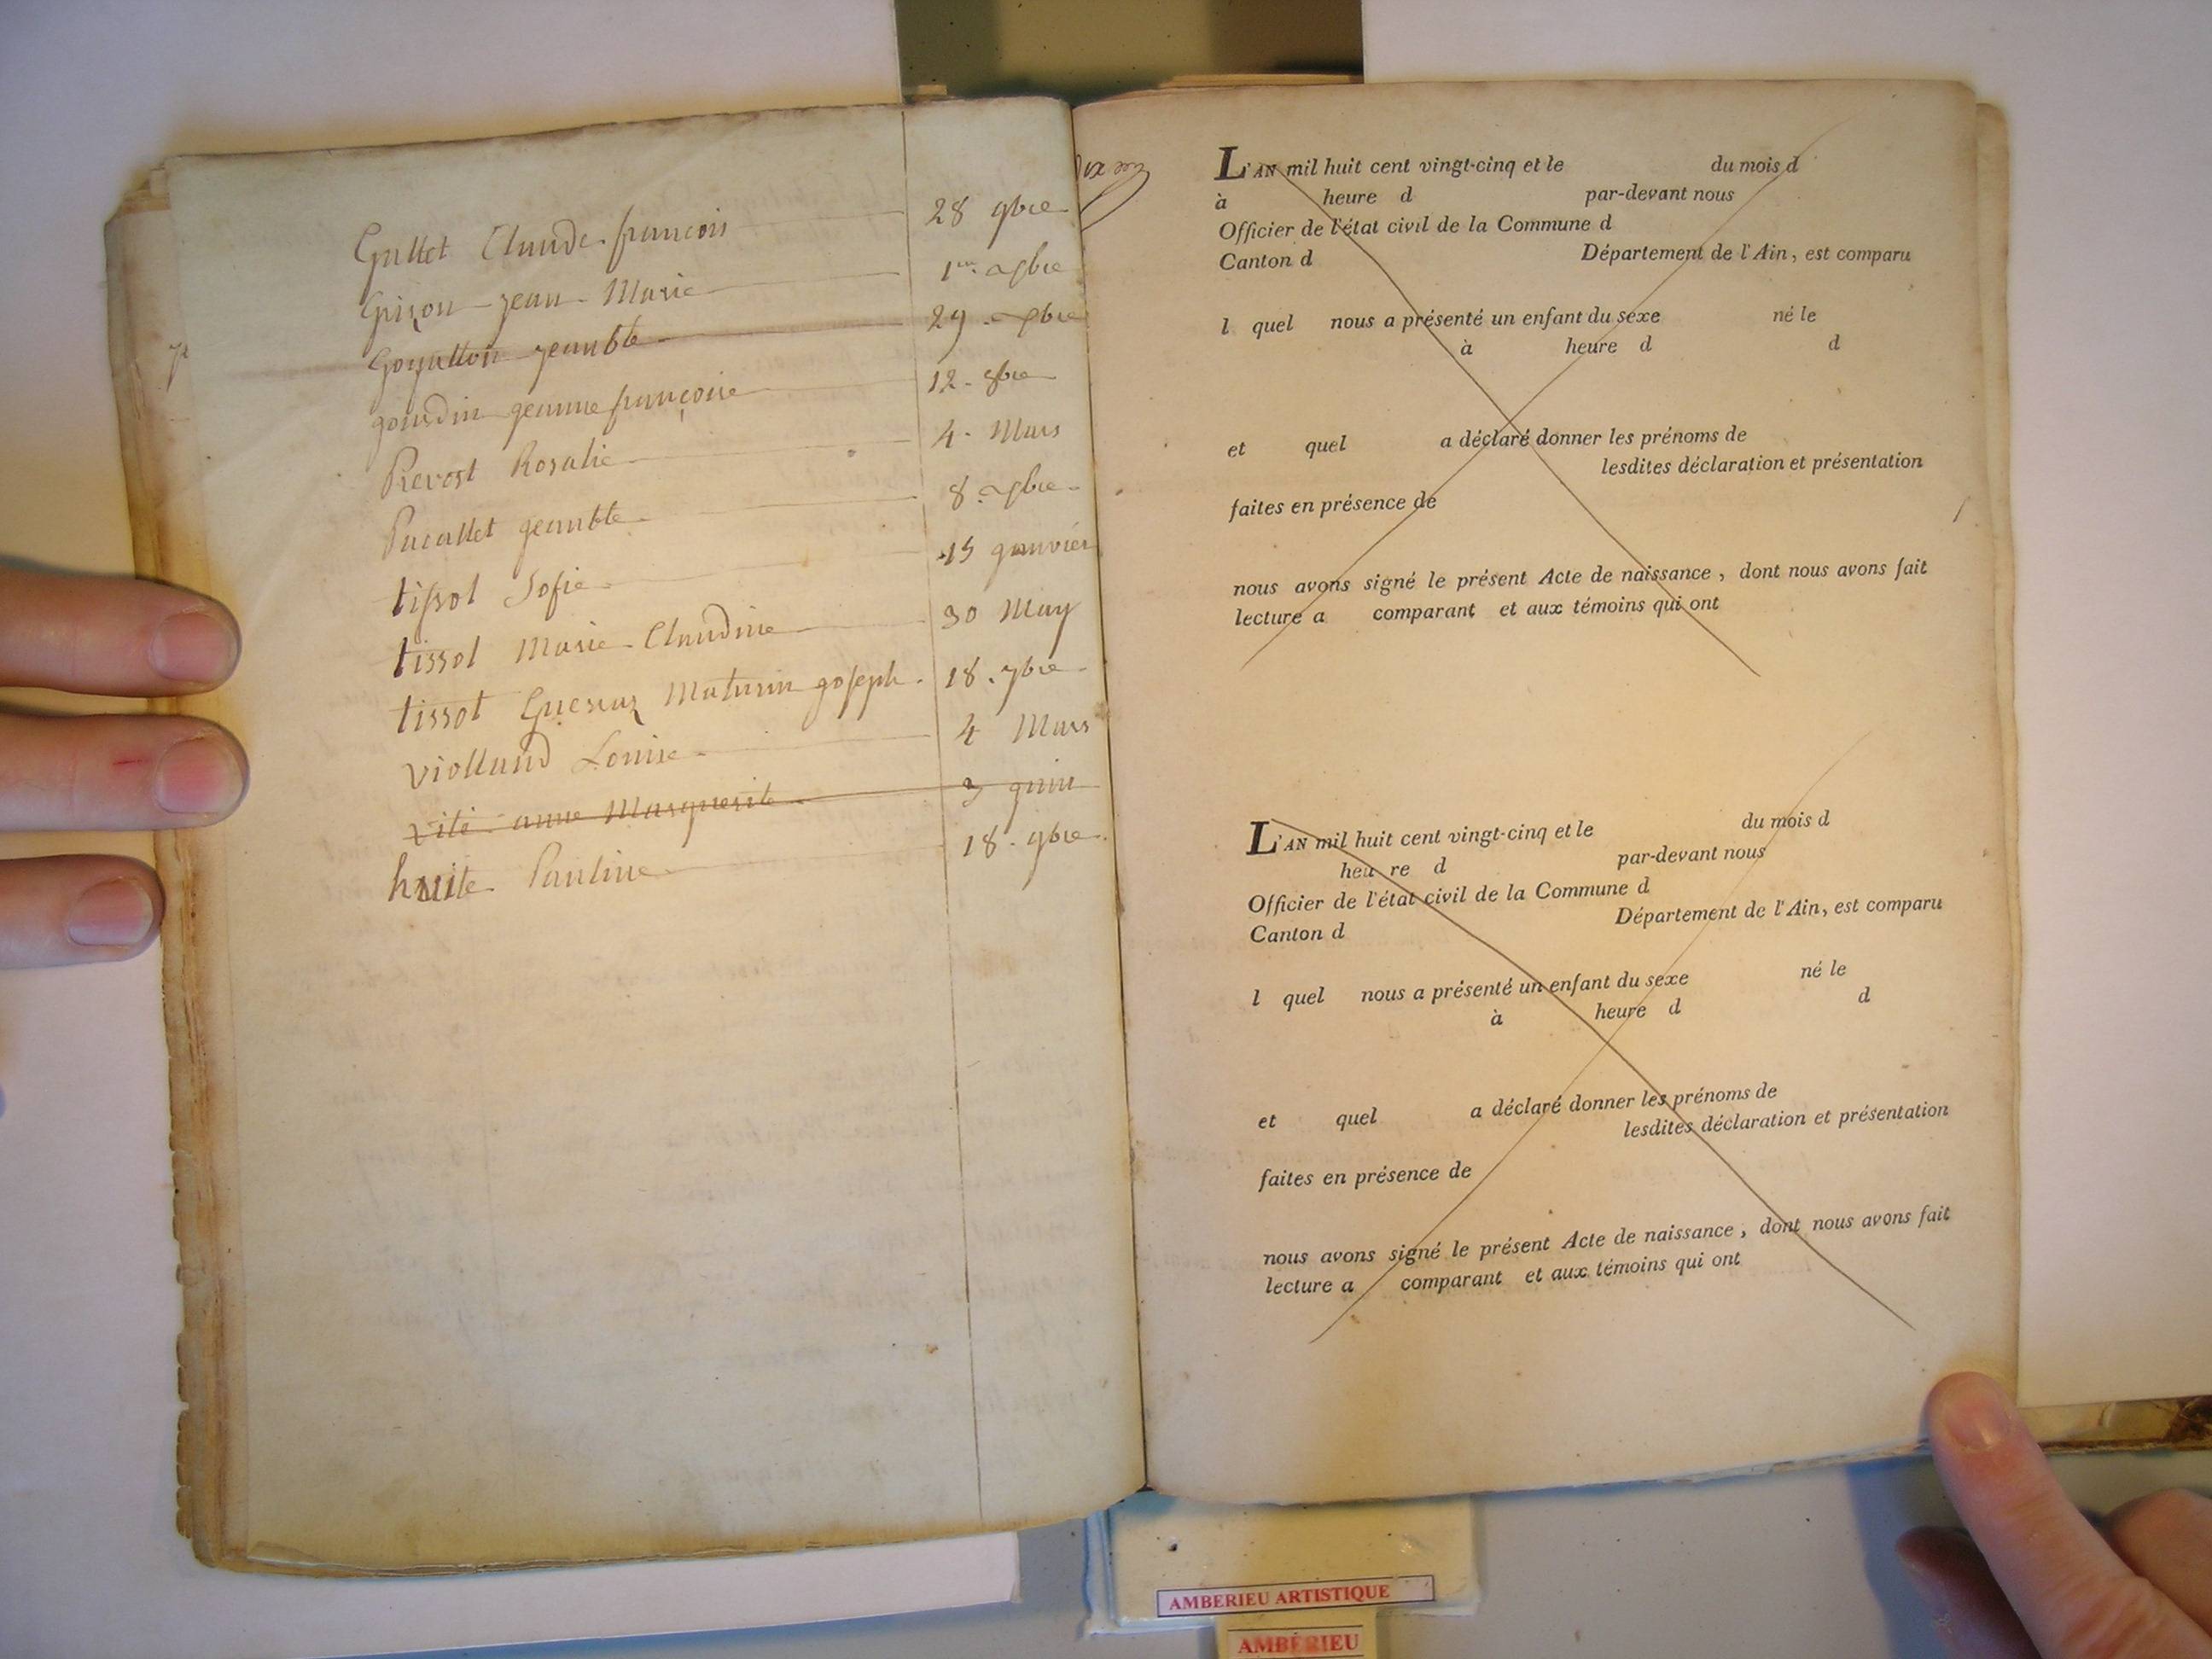 Gullet Claude françois 28 9bre
Grison jean Marie 1er. xbre
Goyatton jeanbte 29. xbre
gourdin jeanne françoise 12. 8bre
Prevost Rosalie 4. Mars
Pucallet jeanbte 8. xbre
tissot Sofie 15 janvier
tissot Marie Claudine 30 May
tissot Guerraz Maturin joseph. 18. 7bre
violland Louise 4 Mars
vite anne Marguerite 3 juin
huite Pauline 18. 9bre
L'AN mil huit cent vingt-cinq et le du mois d
à heure d par-devant nous
Officier de l'état civil de la Commune d
Canton d Département de l'Ain, est comparu
l quel nous a présenté un enfant du sexe né le
à heure d d
et quel a déclaré donner les prénoms de
lesdites déclaration et présentation
faites en présence de
nous avons signé le présent Acte de naissance, dont nous avons fait
lecture a comparant et aux témoins qui ont
L'AN mil huit cent vingt-cinq et le du mois d
heu re d par-devant nous
Officier de l'état civil de la Commune d
Canton d Département de l'Ain, est comparu
l quel nous a présenté un enfant du sexe né le
à heure d d
et quel a déclaré donner les prénoms de
lesdites déclaration et présentation
faites en présence de
nous avons signé le présent Acte de naissance, dont nous avons fait
lecture a comparant et aux témoins qui ont
AMBERIEU ARTISTIQUE
AMBÉRIEU